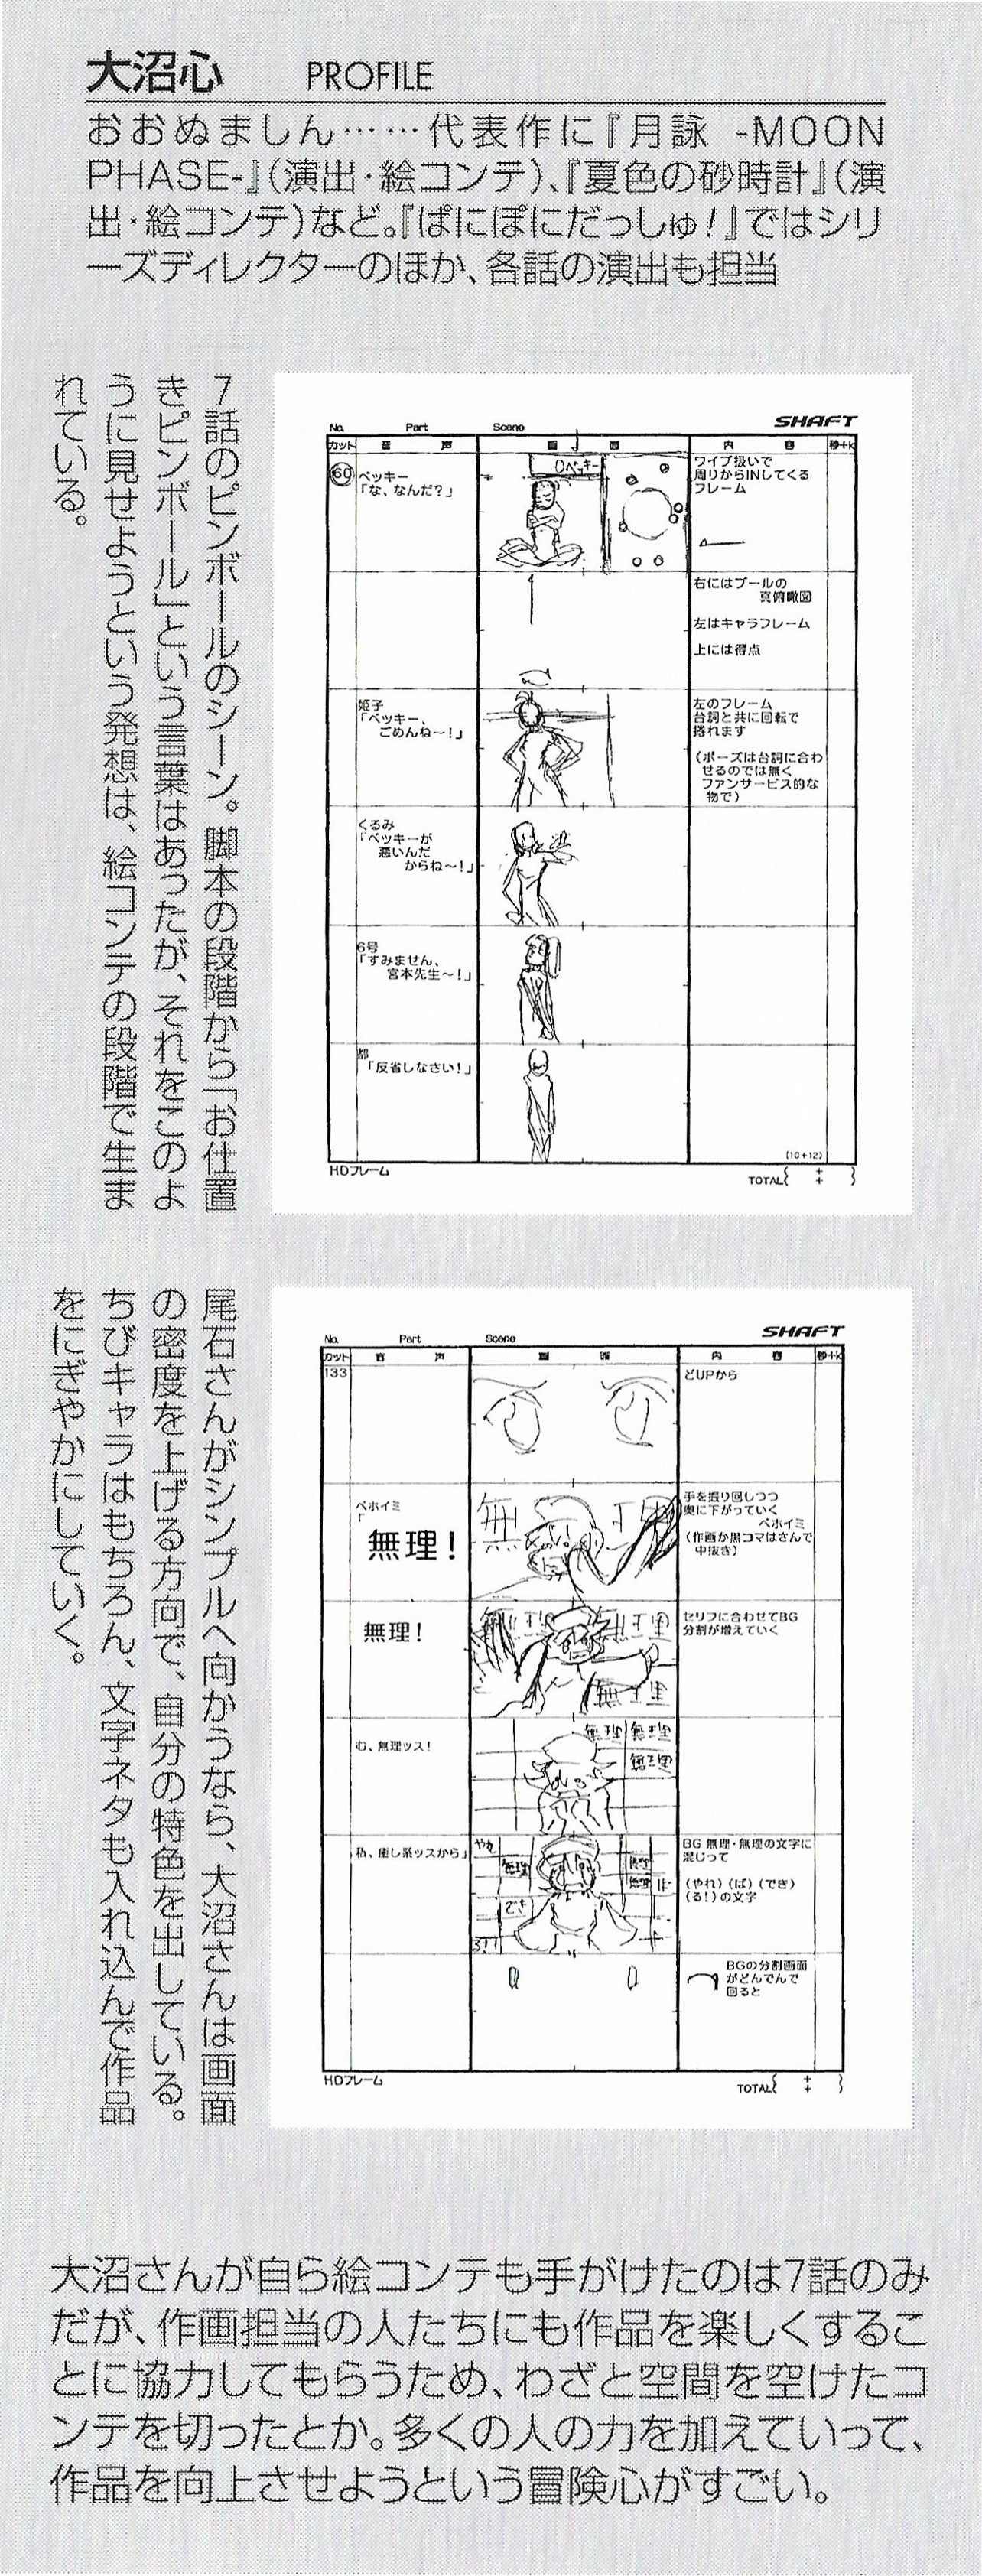 大沼心 PROFILE
おおぬましん……代表作に『月詠 -MOON
PHASE-』(演出・絵コンテ)、『夏色の砂時計』(演
出・絵コンテ)など。『ぱにぽにだっしゅ!』ではシリ
ーズディレクターのほか、各話の演出も担当
7話のピンボールのシーン。脚本の段階から「お仕置
きピンボール」という言葉はあったが、それをこのよ
うに見せようという発想は、絵コンテの段階で生ま
れている。
SHAFT
No. Part Scene
カット 音声 画面 内容 秒+k
60
ベッキー
「な、なんだ?」
0ベッキー
ワイプ扱いで
周りからINしてくる
フレーム
右にはプールの
真俯瞰図
左はキャラフレーム
上には得点
姫子
「ベッキー、
ごめんね〜!」
左のフレーム
台詞と共に回転で
捲れます
(ポーズは台詞に合わ
せるのでは無く
ファンサービス的な
物で)
くるみ
「ベッキーが
悪いんだ
からね〜!」
6号
「すみません、
宮本先生〜!」
都
「反省しなさい!」
(10+12)
HDフレーム
TOTAL( + + )
尾石さんがシンプルへ向かうなら、大沼さんは画面
の密度を上げる方向で、自分の特色を出している。
ちびキャラはもちろん、文字ネタも入れ込んで作品
をにぎやかにしていく。
SHAFT
No. Part Scene
カット 音声 画面 内容 秒+k
133
どUPから
ベホイミ
「
無理!
無理
手を振り回しつつ
奥に下がっていく
ベホイミ
(作画か黒コマはさんで
中抜き)
無理!
無理 無理
無理
セリフに合わせてBG
分割が増えていく
む、無理ッス!
無理 無理
無理
私、癒し系ッスから」
やれ
無理
でき
る!!
無理
無理 ば
BG 無理・無理の文字に
混じって
(やれ)(ば)(でき)
(る!)の文字
BGの分割画面
がどんでんで
回ると
HDフレーム
TOTAL( + + )
大沼さんが自ら絵コンテも手がけたのは7話のみ
だが、作画担当の人たちにも作品を楽しくするこ
とに協力してもらうため、わざと空間を空けたコ
ンテを切ったとか。多くの人の力を加えていって、
作品を向上させようという冒険心がすごい。